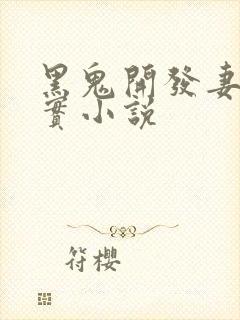 黑鬼開發妻
實小說
符櫻